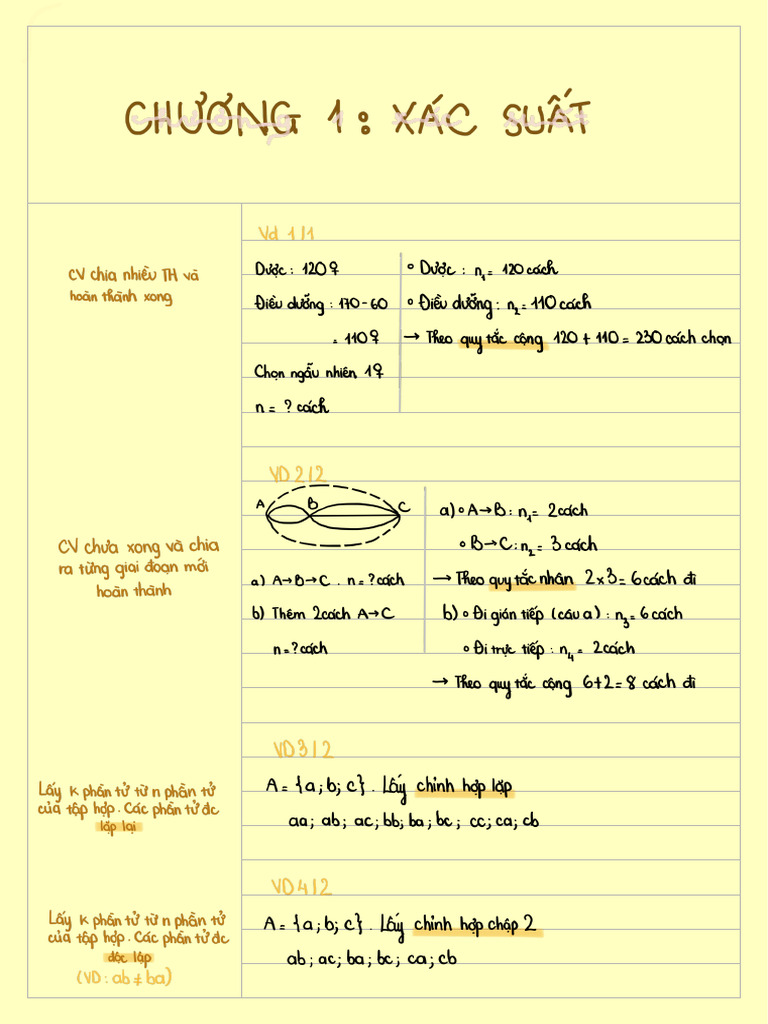 CHƯƠNG 1: XÁC SUẤT
CV chia nhiều TH và
hoàn thành xong
Vd 1/1
Dược: 120♀
Điều dưỡng: 170-60
= 110♀
Chọn ngẫu nhiên 1♀
n = ? cách
∘ Dược: n₁ = 120 cách
∘ Điều dưỡng: n₂ = 110 cách
→ Theo quy tắc cộng 120 + 110 = 230 cách chọn
CV chưa xong và chia
ra từng giai đoạn mới
hoàn thành
VD 2/2
A B C
a) A→B→C. n = ? cách
b) Thêm 2 cách A→C
n = ? cách
a) ∘ A→B: n₁ = 2 cách
∘ B→C: n₂ = 3 cách
→ Theo quy tắc nhân 2×3 = 6 cách đi
b) ∘ Đi gián tiếp (câu a): n₃ = 6 cách
∘ Đi trực tiếp: n₄ = 2 cách
→ Theo quy tắc cộng 6+2 = 8 cách đi
Lấy k phần tử từ n phần tử
của tập hợp. Các phần tử đc
lặp lại
VD3/2
A = {a; b; c}. Lấy chỉnh hợp lặp
aa; ab; ac; bb; ba; bc; cc; ca; cb
Lấy k phần tử từ n phần tử
của tập hợp. Các phần tử đc
độc lập
(VD: ab ≠ ba)
VD4/2
A = {a; b; c}. Lấy chỉnh hợp chập 2
ab; ac; ba; bc; ca; cb